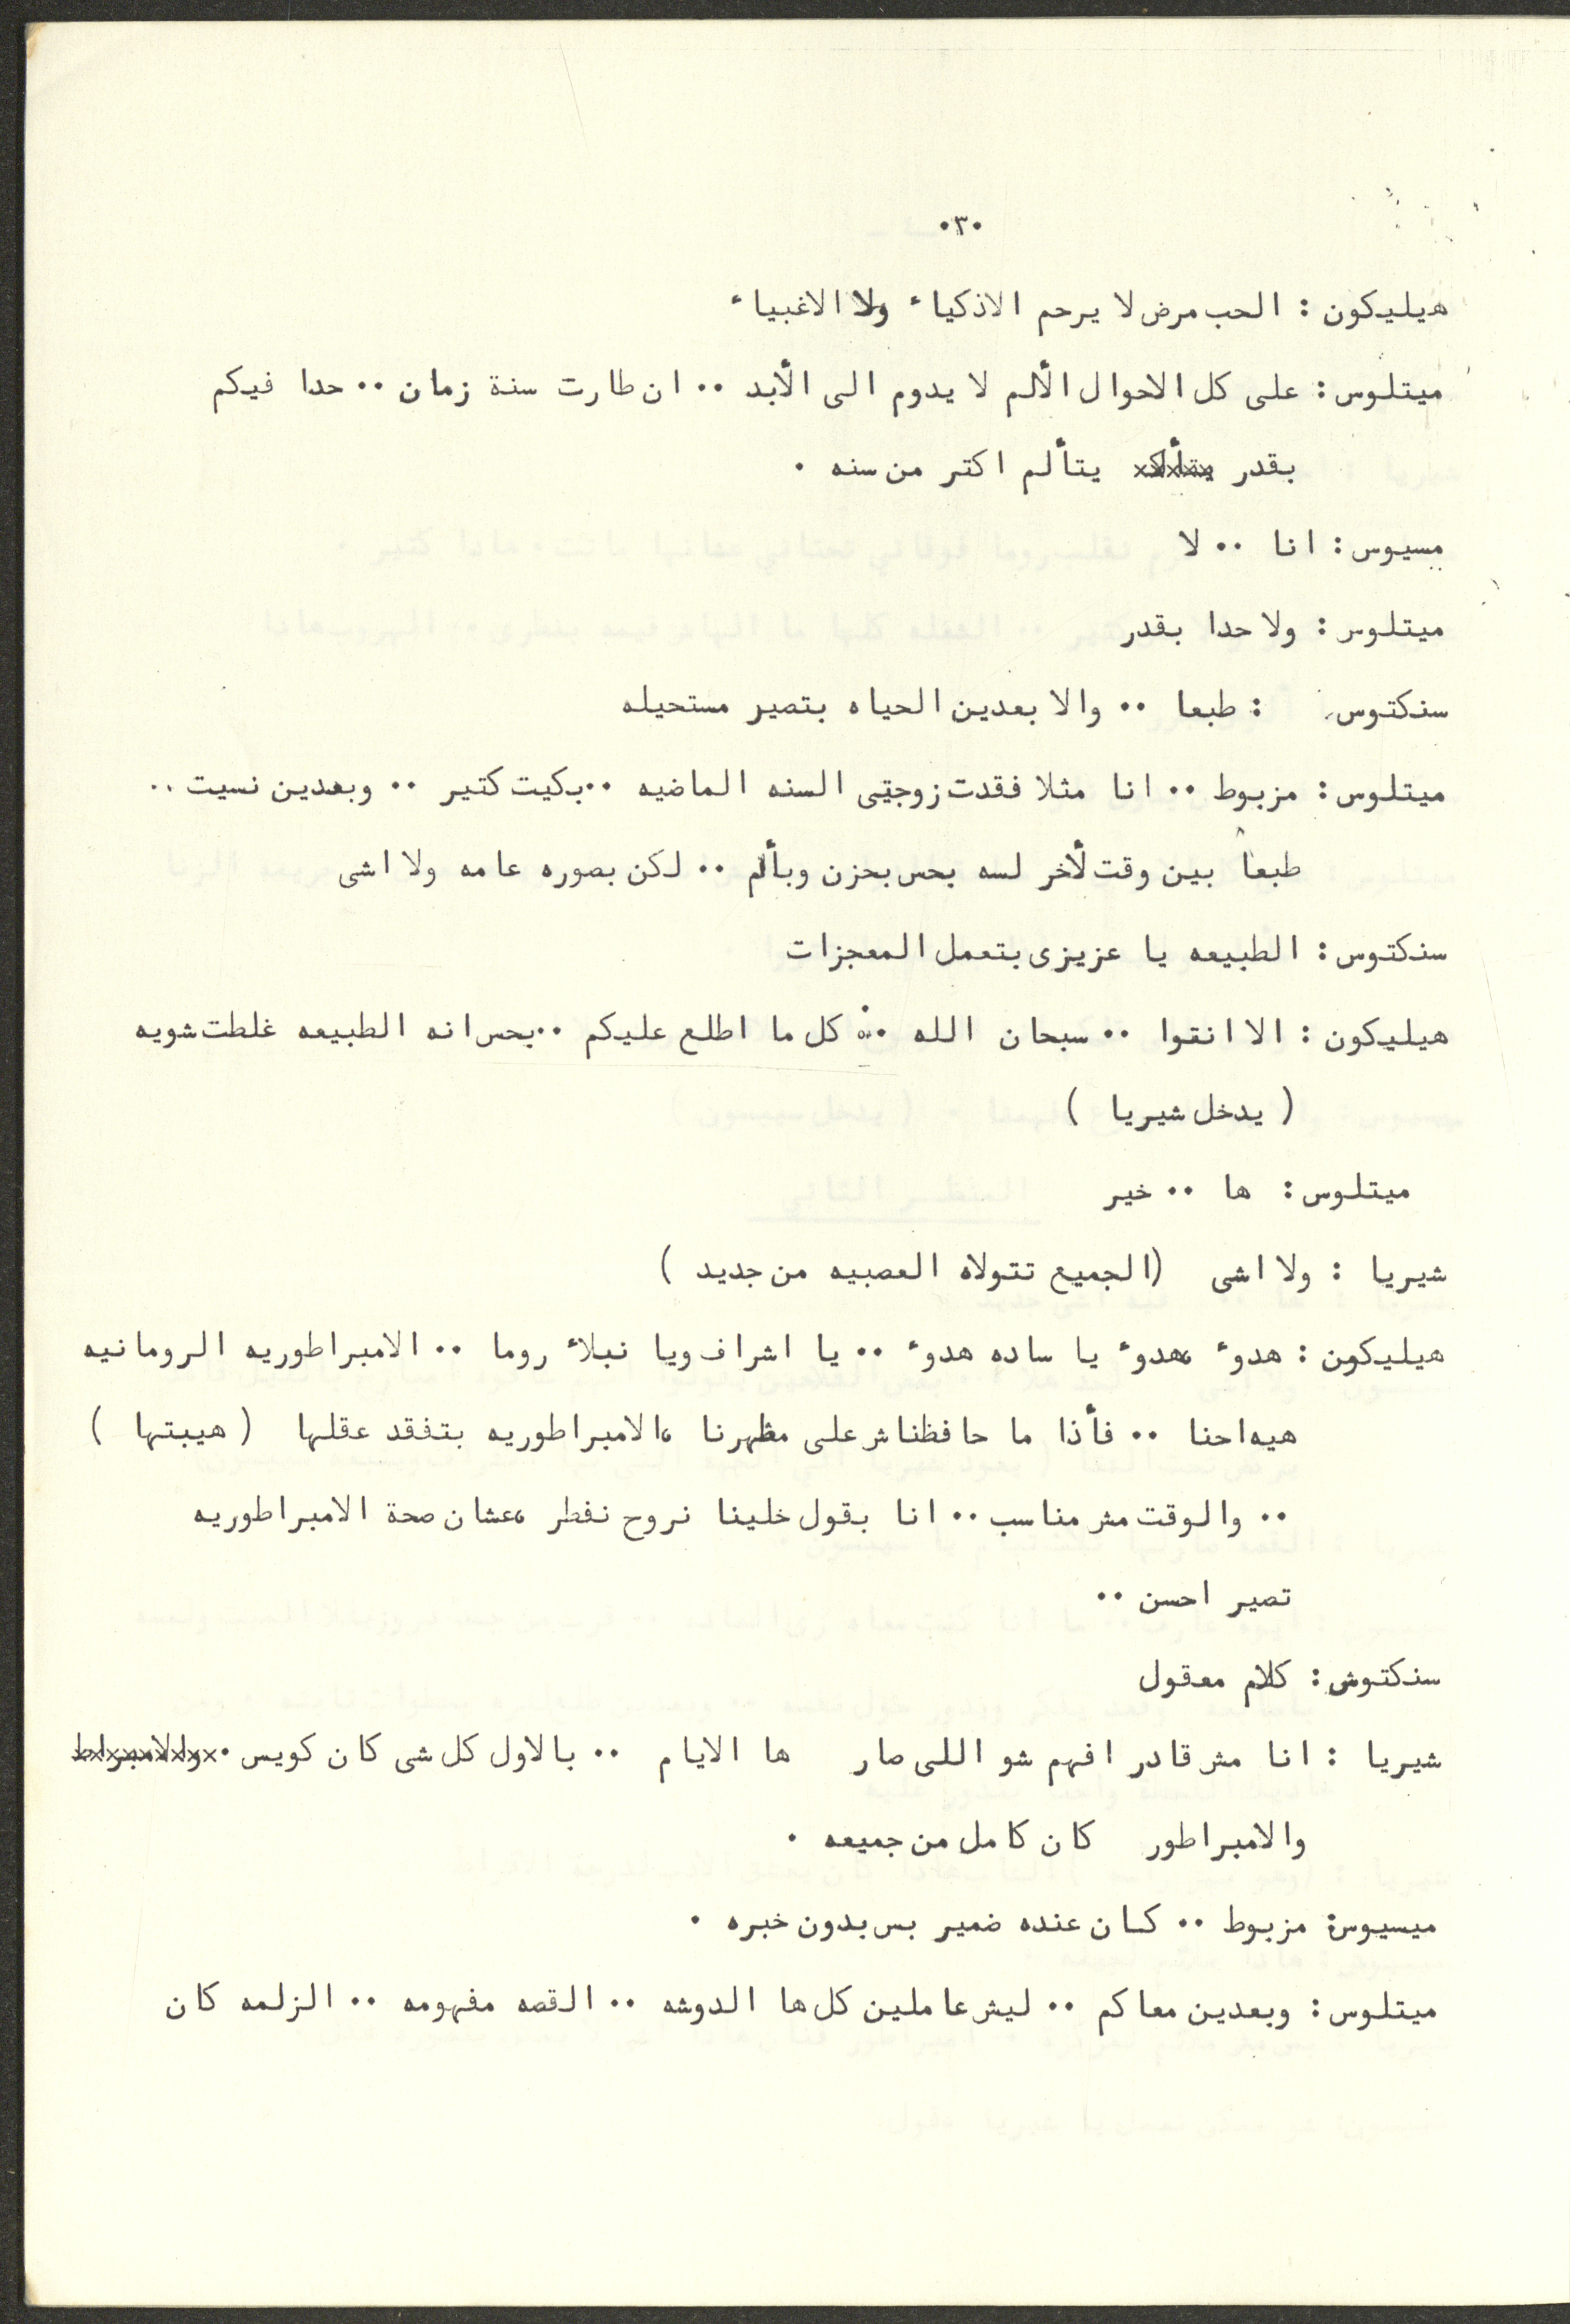 ٠٣٠
هيليكون : الحب مرض لا يرحم الاذكياء ولا الاغبياء
ميتلوس : على كل الاحوال الألم لا يدوم الى الأبد ٠٠ ان طارت سنة زمان ٠٠ حدا فيكم
بقدر يتألم اكتر من سنه ٠
ميسيوس : انا ٠٠ لا
ميتلوس : ولا حدا بقدر
سنكتوس : طبعا ٠٠ والا بعدين الحياه بتصير مستحيله
ميتلوس : مزبوط ٠٠ انا مثلا فقدت زوجتى السنه الماضيه ٠٠ بكيت كتير ٠٠ وبعدين نسيت ٠٠
طبعاً بين وقت لأخر لسه بحس بحزن وبألم ٠٠ لكن بصوره عامه ولا اشى
سنكتوس : الطبيعه يا عزيزى بتعمل المعجزات
هيليكون : الا انقوا ٠٠ سبحان الله ٠٠ كل ما اطلع عليكم ٠٠ بحس انه الطبيعه غلطت شويه
( يدخل شيريا )
ميتلوس : ها ٠٠ خير
شيريا : ولا اشى (الجميع تتولاه العصبيه من جديد )
هيليكون : هدوء ،هدوء يا ساده هدوء ٠٠ يا اشراف ويا نبلاء روما ٠٠ الامبراطوريه الرومانيه
هيه احنا ٠٠ فأذا ما حافظناش على مظهرنا ،الامبراطوريه بتفقد عقلها ( هيبتها )
٠٠ والوقت مش مناسب ٠٠ انا بقول خلينا نروح نفطر ،عشان صحة الامبراطوريه
تصير احسن ٠٠
سنكتوس : كلام معقول
شيريا : انا مش قادر افهم شو اللى صار ها الايام ٠٠ بالاول كل شى كان كويس ٠ والامبراط
والامبراطور كان كامل من جميعه ٠
ميسيوس: مزبوط ٠٠ كان عنده ضمير بس بدون خبره ٠
ميتلوس : وبعدين معاكم ٠٠ ليش عاملين كل ها الدوشه ٠٠ القصه مفهومه ٠٠ الزلمه كان